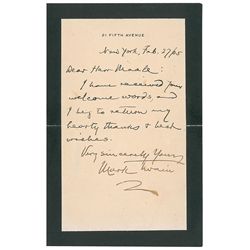 21 FIFTH AVENUE
New York, Feb. 27/05
Dear Herr
I have received your
welcome words, and
I beg to return my
hearty thanks & best
wishes.
Very sincerely Yours
Mark Twain